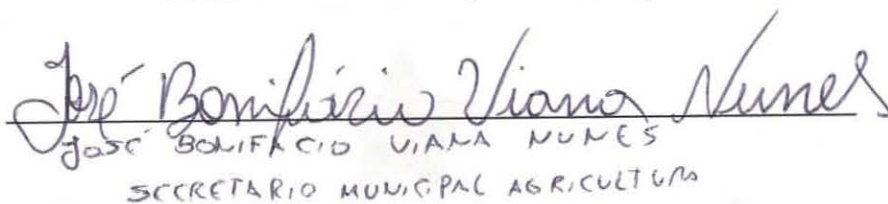 José Bonifácio Viana Nunes
José BONIFACIO VIANA NUNES
SECRETARIO MUNICIPAL AGRICULTURA